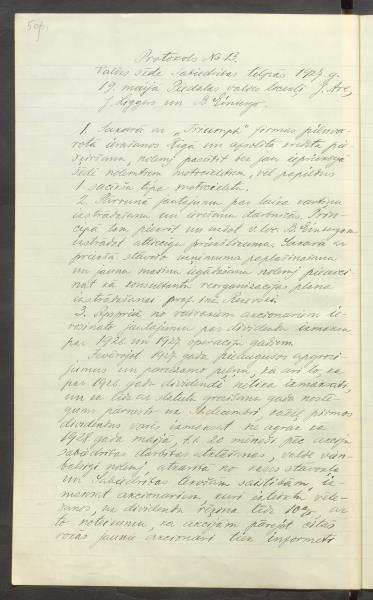 50p.
Protokols No 13.
Valdes sēde Sabiedrības telpās 1927. g.
19. maijā Piedalās valdes locekļi J. Are,
J. Roggers un B. Einbergs.
1. Sakarā ar „Triumph" firmas pilnva-
rotā ierašanos Rīgā un apsolītā kredīta pie-
šķiršanu, nolemj pasūtīt bez jau iepriekšējā
sēdē nolemtiem motocikletiem, vēl papildus
1 tipa motocikletu.
2. Pārrunā jautājumu par laika
iestrādāšanu un ievešanu darbnīcās. Prin-
cipā tam piekrīt un uzdod v. loc. B. Einbergam
izstrādāt attiecīgu priekšlikumu. Sakarā ar
priekšā stāvošo uzņēmuma paplašināšanu
un jaunu mašīnu iegādāšanu nolemj pieaici-
nāt kā konsultantu reorganizācijas plāna
izstrādāšanai prof. inž.
3. Apspriež no vairākiem akcionāriem ie-
rosināto jautājumu par dividendu izmaksu
par 1926. un 1927 operāciju gadiem.
Ievērojot 1927 gada pieaugušos apgrozī-
jumus un paredzamo peļņu, kā arī to, ka
par 1926. gadu dividende netika izmaksāta,
un ka līdz ar statūtu grozīšanu gada noslē-
gums pārnests uz Decembri, kādēļ pirmās
dividendes varēs izmaksāt ne agrāk kā
1928. gada maijā, t.i. 20 mēneši pēc akciju
sabiedrības darbības atklāšanas, valde vien-
balsīgi nolemj, atkarībā no kases stāvokļa
un Sabiedrības tekošām saistībām, iz-
maksāt akcionāriem, kuri izteiktu vēlē-
šanos, uz dividendu rēķina līdz 10%, ar
to noteikumu, ka akcijām pārejot citās
rokās jaunie akcionāri tiek informēti